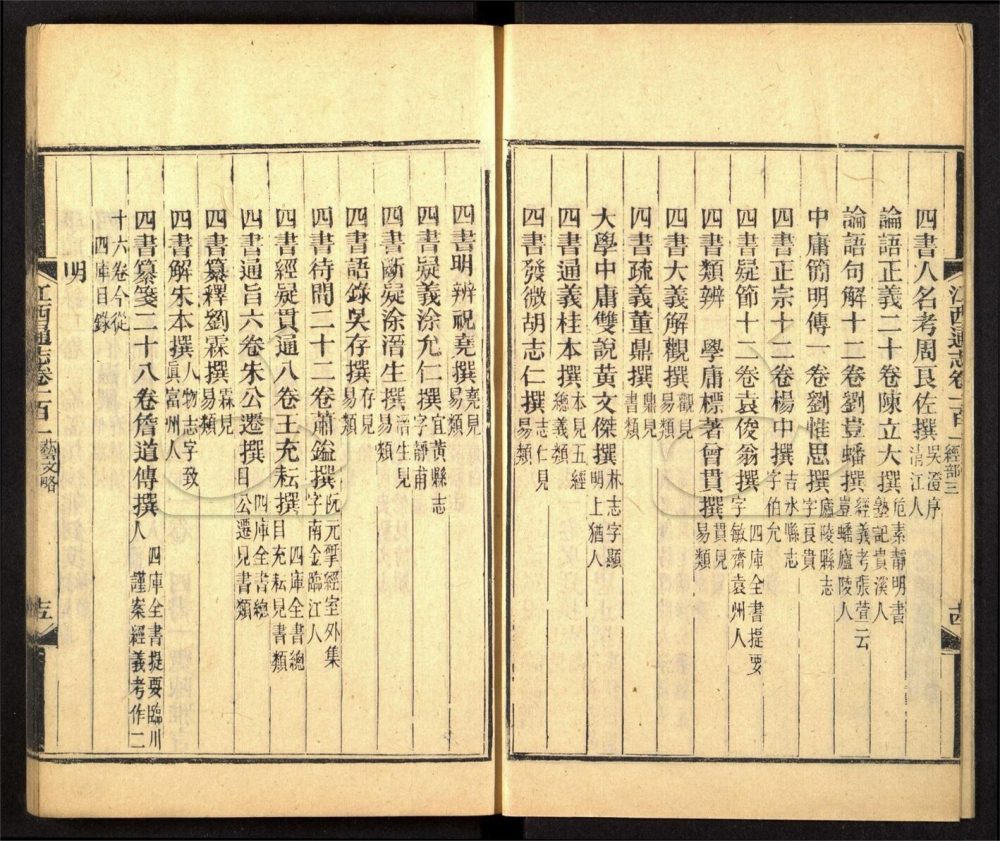 江西通志卷一百一 經部三 古
四書人名考周艮佐撰 吳澄序 清江人
論語正義二十卷陳立大撰 危素靜明書塾記貴溪人
論語句解十二卷劉豈蟠撰 經義考張萱云豈蟠廬陵人
中庸簡明傳一卷劉惟思撰 廬陵縣志 字良貴
四書正宗十二卷楊中撰 吉水縣志 字伯允
四書疑節十二卷袁俊翁撰 四庫全書提要 字敏齋袁州人
四書類辨 學庸標著曾貫撰 貫見易類
四書大義解觀撰 觀見易類
四書疏義董鼎撰 鼎見書類
大學中庸雙說黃文傑撰 林志字顯明上猶人
四書通義桂本撰 本見五經總義類
四書發微胡志仁撰 志仁見易類
四書明辨祝堯撰 堯見易類
四書疑義涂允仁撰 宜黃縣志 字靜甫
四書斷疑涂溍生撰 溍生見易類
四書語錄吳存撰 存見易類
四書待問二十二卷蕭鎰撰 阮元揅經室外集 字南金臨江人
四書經疑貫通八卷王充耘撰 四庫全書總目充耘見書類
四書通旨六卷朱公遷撰 四庫全書總目公遷見書類
四書纂釋劉霖撰 霖見易類
四書解朱本撰 人物志字致眞富州人
四書纂箋二十八卷詹道傳撰 四庫全書提要臨川人 謹案經義考作二
十六卷今從四庫目錄
明
江西通志卷一百一 藝文略